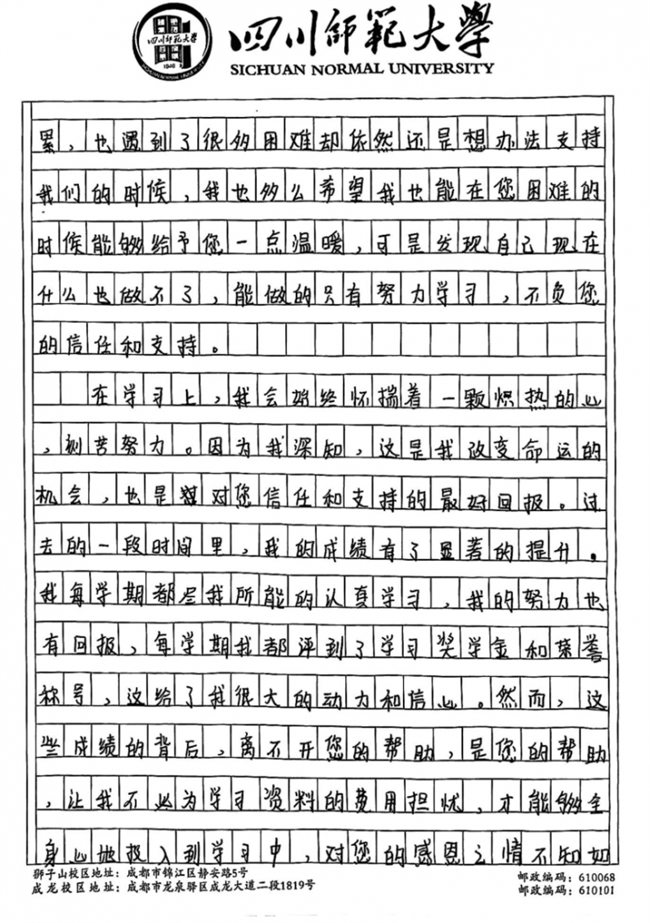 四川师范大学
1946
四川師範大學
SICHUAN NORMAL UNIVERSITY
累，也遇到了很多困难却依然还是想办法支持
我们的时候，我也多么希望我也能在您困难的
时候能够给予您一点温暖，可是发现自己现在
什么也做不了，能做的只有努力学习，不负您
的信任和支持。
在学习上，我会始终怀揣着一颗炽热的心
，刻苦努力。因为我深知，这是我改变命运的
机会，也是对您信任和支持的最好回报。过
去的一段时间里，我的成绩有了显著的提升。
我每学期都尽我所能的认真学习，我的努力也
有回报，每学期我都评到了学习奖学金和荣誉
称号，这给了我很大的动力和信心。然而，这
些成绩的背后，离不开您的帮助，是您的帮助
，让我不必为学习资料的费用担忧，才能够全
身心地投入到学习中，对您的感恩之情不知如
狮子山校区地址：成都市锦江区静安路5号
邮政编码：610068
成龙校区地址：成都市龙泉驿区成龙大道二段1819号
邮政编码：610101